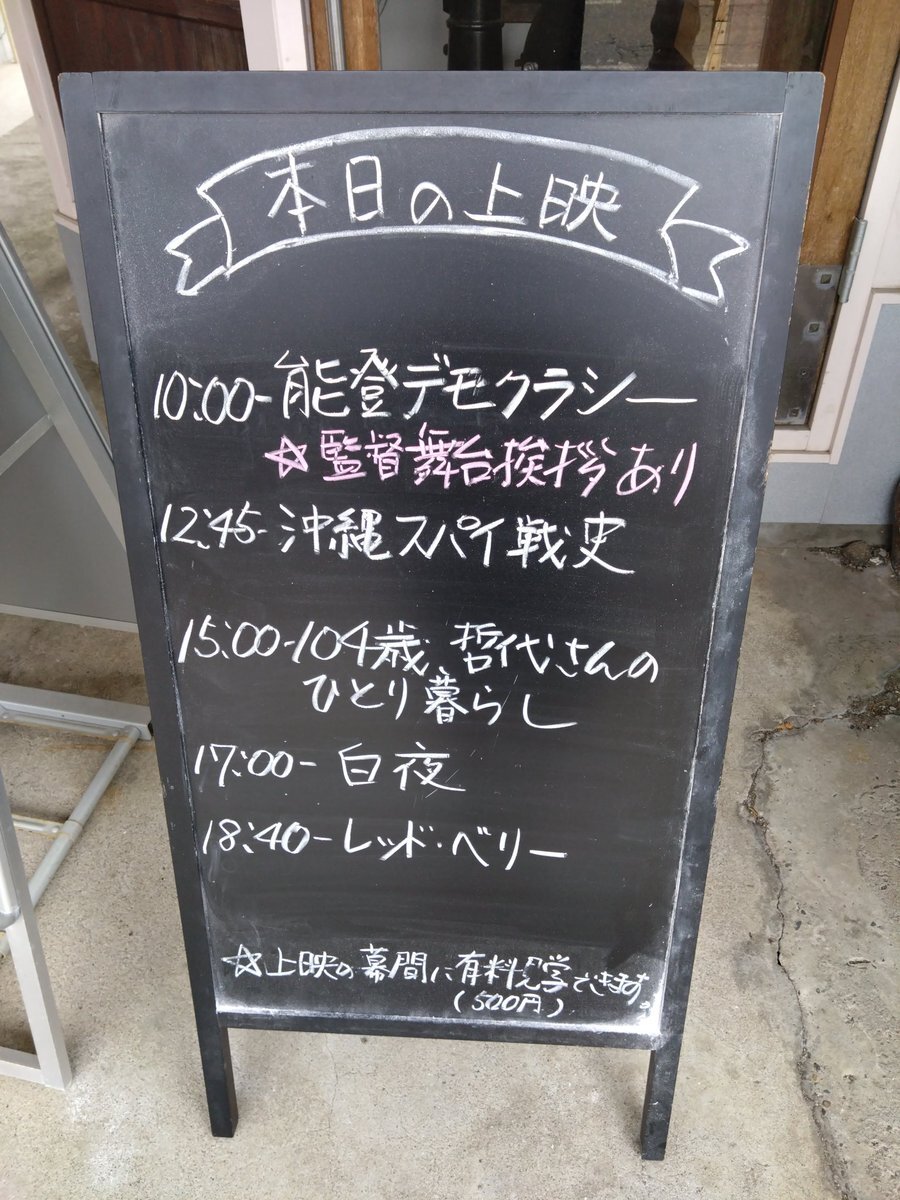 本日の上映
10:00-能登デモクラシー
☆監督舞台挨拶あり
12:45-沖縄スパイ戦史
15:00-104歳、哲代さんの
ひとり暮らし
17:00-白夜
18:40-レッド・ベリー
☆上映の幕間に有料見学できます。
(500円)